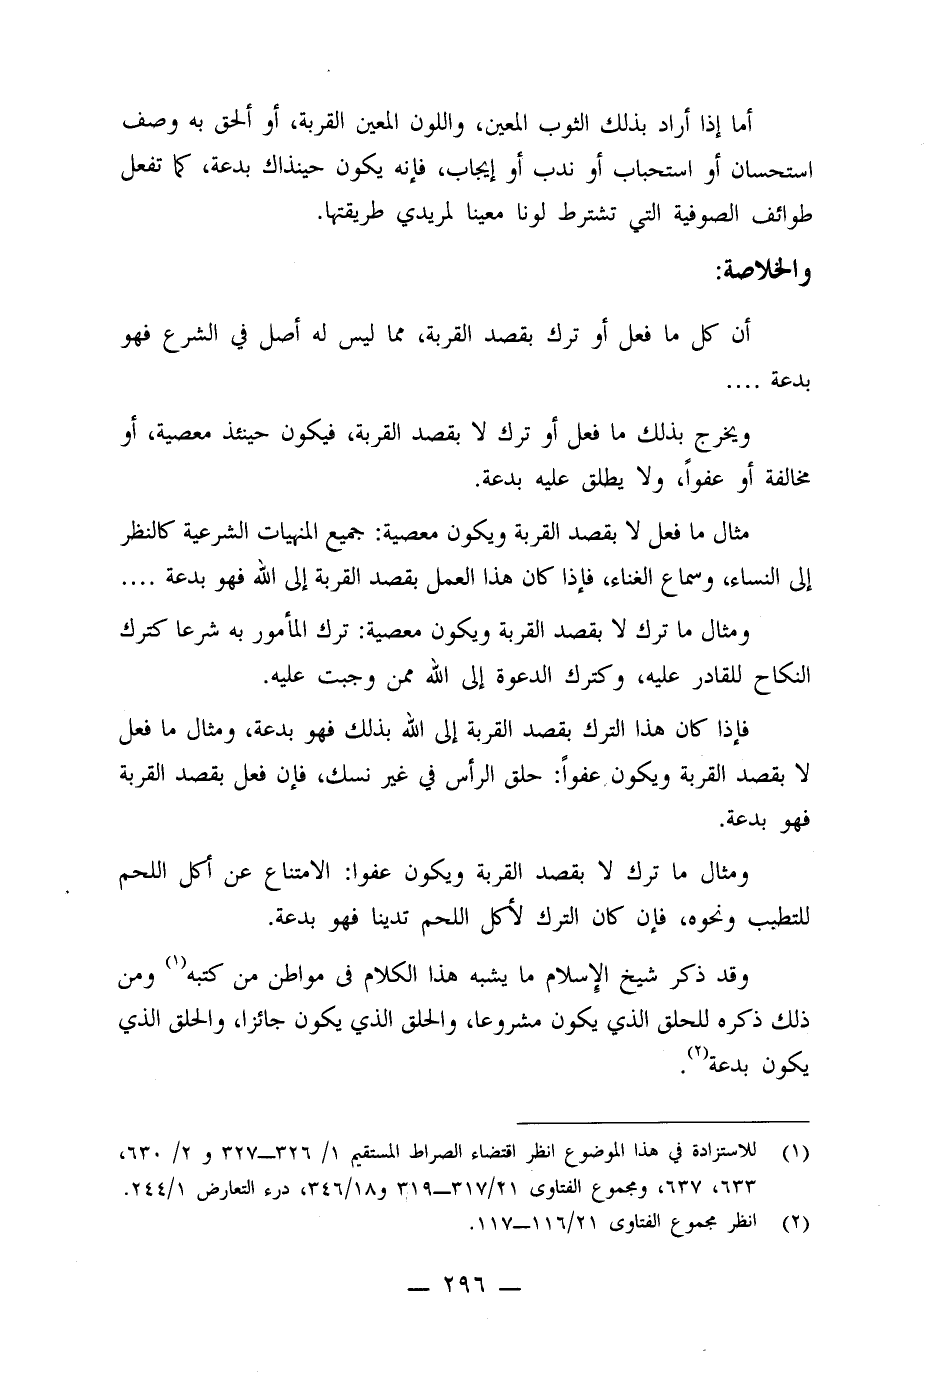 أما إذا أراد بذلك الثوب المعين، واللون المعين القربة، أو ألحق به وصف
استحسان أو استحباب أو ندب أو إيجاب، فإنه يكون حينذاك بدعة، كما تفعل
طوائف الصوفية التي تشترط لونا معينا لمريدي طريقتها.
والخلاصة:
أن كل ما فعل أو ترك بقصد القربة، مما ليس له أصل في الشرع فهو
بدعة ....
ويخرج بذلك ما فعل أو ترك لا بقصد القربة، فيكون حينئذ معصية، أو
مخالفة أو عفواً، ولا يطلق عليه بدعة.
مثال ما فعل لا بقصد القربة ويكون معصية: جميع المنهيات الشرعية كالنظر
إلى النساء، وسماع الغناء، فإذا كان هذا العمل بقصد القربة إلى الله فهو بدعة ....
ومثال ما ترك لا بقصد القربة ويكون معصية: ترك المأمور به شرعا كترك
النكاح للقادر عليه، وكترك الدعوة إلى الله ممن وجبت عليه.
فإذا كان هذا الترك بقصد القربة إلى الله بذلك فهو بدعة، ومثال ما فعل
لا بقصد القربة ويكون عفواً: حلق الرأس في غير نسك، فإن فعل بقصد القربة
فهو بدعة.
ومثال ما ترك لا بقصد القربة ويكون عفوا: الامتناع عن أكل اللحم
للتطبب ونحوه، فإن كان الترك لأكل اللحم تدينا فهو بدعة.
وقد ذكر شيخ الإسلام ما يشبه هذا الكلام فى مواطن من كتبه(١) ومن
ذلك ذكره للحلق الذي يكون مشروعا، والحلق الذي يكون جائزا، والحلق الذي
يكون بدعة(٢).
(١) للاستزادة في هذا الموضوع انظر اقتضاء الصراط المستقيم ١/ ٣٢٦ــ٣٢٧ و ٢/ ٦٣٠،
٦٣٣، ٦٣٧، ومجموع الفتاوى ٣١٧/٢١ــ٣١٩ و٣٤٦/١٨، درء التعارض ٢٤٤/١.
(٢) انظر مجموع الفتاوى ١١٦/٢١ــ١١٧.
— ٢٩٦ —